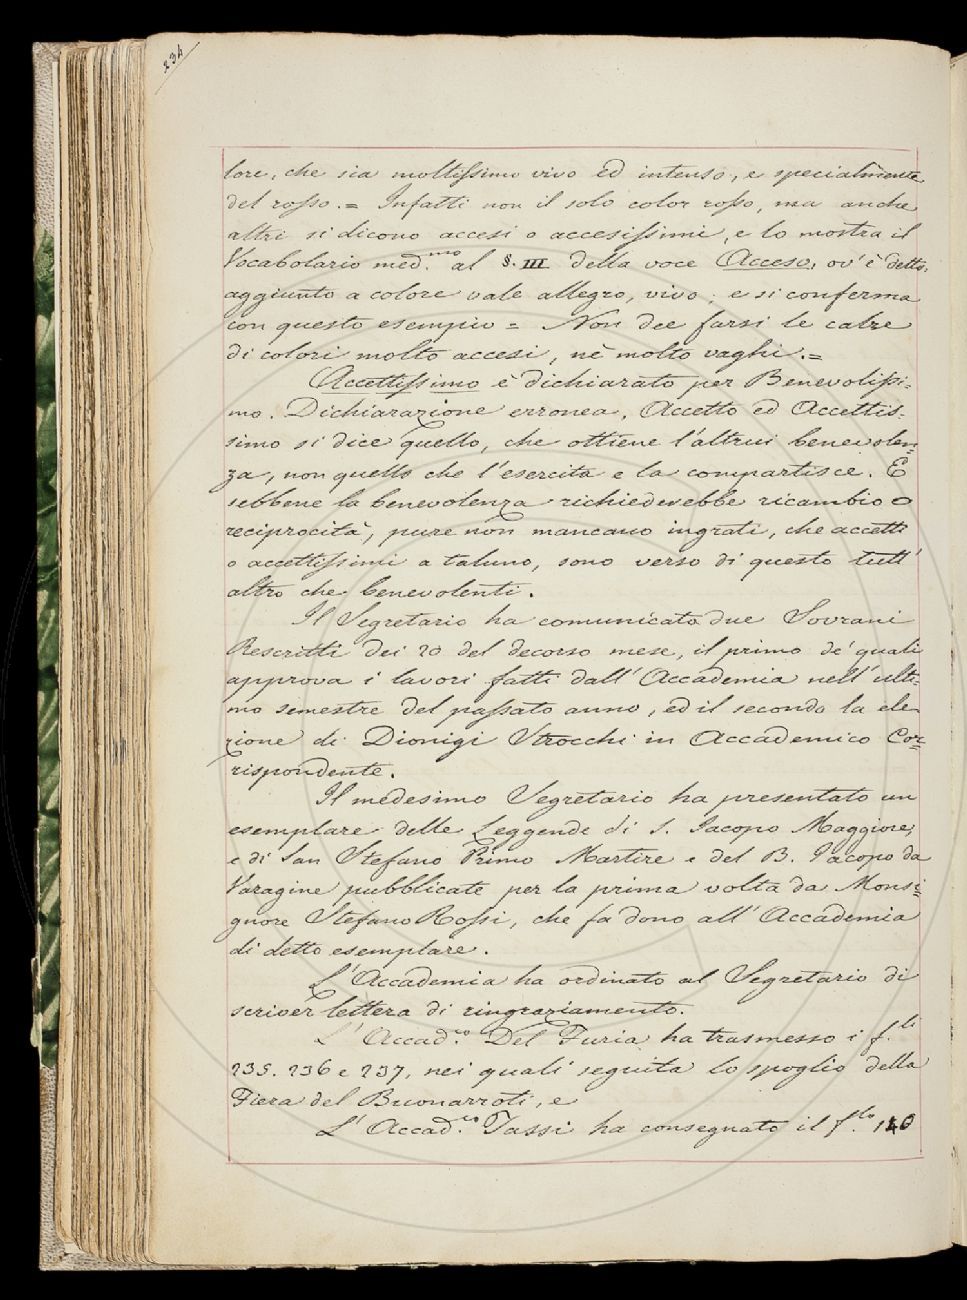 234
lore, che sia moltissimo vivo ed intenso, e specialmente
del rosso. = Infatti non il solo color rosso, ma anche
altri si dicono accesi o accesissimi, e lo mostra il
Vocabolario med.mo al §. III della voce Acceso, ov'è detto:
aggiunto a colore vale allegro, vivo; e si conferma
con questo esempio = Non dee farsi le calze
di colori molto accesi, nè molto vaghi. =
Accettissimo è dichiarato per Benevolissi=
mo. Dichiarazione erronea. Accetto ed Accettis=
simo si dice quello, che ottiene l'altrui benevolen=
za, non quello che l'esercita e la compartisce. E
sebbene la benevolenza richiederebbe ricambio o
reciprocità, pure non mancano ingrati, che accetti
o accettissimi a taluno, sono verso di questo tutt'
altro che benevolenti.
Il Segretario ha comunicato due Sovrani
Rescritti dei 20 del decorso mese, il primo de' quali
approva i lavori fatti dall'Accademia nell'ulti=
mo semestre del passato anno, ed il secondo la ele
zione di Dionigi Strocchi in Accademico Cor=
rispondente.
Il medesimo Segretario ha presentato un
esemplare delle Leggende di S. Jacopo Maggiore,
e di San Stefano Primo Martire e del B. Jacopo da
Varagine pubblicate per la prima volta da Monsi=
gnore Stefano Rossi, che fa dono all'Accademia
di detto esemplare.
L'Accademia ha ordinato al Segretario di
scriver lettera di ringraziamento.
L'Accad.co Del Furia ha trasmesso i f.li
235. 236 e 237, nei quali seguita lo spoglio della
Fiera del Buonarroti, e
L'Accad.co Tassi ha consegnato il f.lo 140